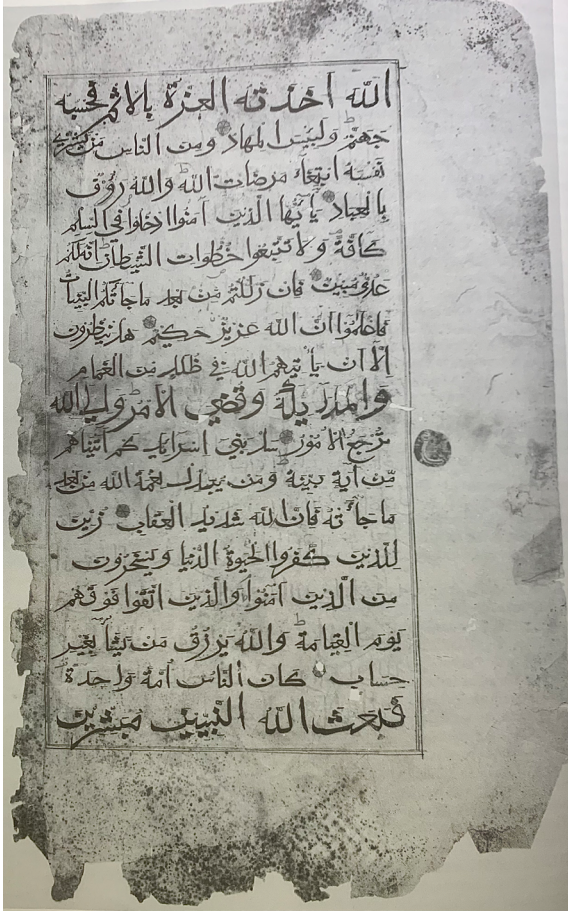 الله اخذته العزة بالاثم فحسبه
جهنم ولبيس المهاد ومن الناس من يشري
نفسه ابتغاء مرضات الله والله روف
بالعباد يا يها الذين آمنوا ادخلوا في السلم
كافة ولا تتبعوا خطوات الشيطان انه لكم
عدو مبين فان زللتم من بعد ما جا تكم البينات
فاعلموا ان الله عزيز حكيم هل ينظرون
الا ان يا تيهم الله في ظلل من الغمام
والملايكة وقضي الامر والى الله
ترجع الامور سل بني اسرايل كم آتيناهم
من آية بينة ومن يبدل نعمة الله من بعد
ما جاءته فان الله شديد العقاب زين
للذين كفروا الحيوة الدنيا ويسخرون
من الذين آمنوا والذين اتقوا فوقهم
يوم القيامة والله يرزق من يشاء بغير
حساب كان الناس امة واحدة
فبعث الله النبيين مبشرين